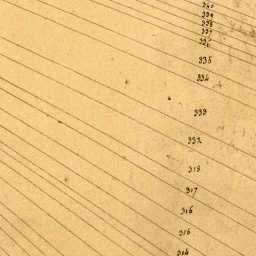 339
338
337
336
335
334
333
332
318
317
316
315
314